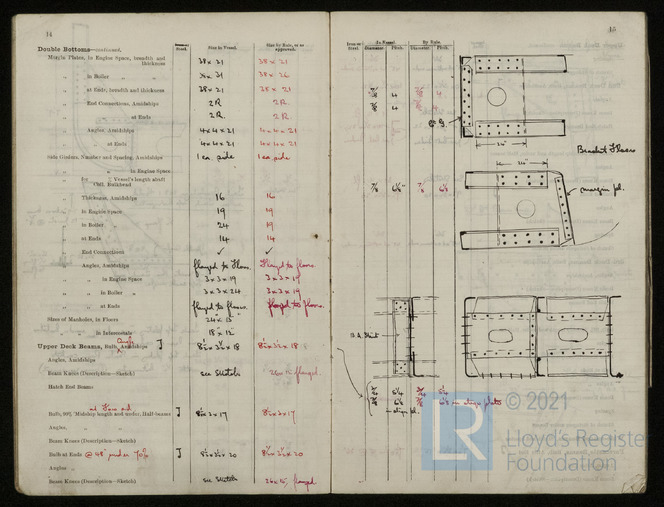 14
Double Bottoms—continued.
Iron or Steel.
Size in Vessel.
Size by Rule, or as approved.
Margin Plates, in Engine Space, breadth and thickness 38 x 21 38 x 21
„ in Boiler „ „ 38 x 26
„ at Ends, breadth and thickness 38 x 21 38 x 21
„ End Connections, Amidships 2 R 2 R.
„ „ at Ends 2 R. 2 R.
„ Angles, Amidships 4 x 4 x 21 4 x 4 x 21
„ „ at Ends 4 x 4 x 21 4 x 4 x 21
Side Girders, Number and Spacing, Amidships 1 ea. side 1 ea. side
„ „ in Engine Space
„ for Vessel's length abaft Coll. Bulkhead
„ Thickness, Amidships 16 16
„ in Engine Space 19 19
„ in Boiler „ 24 19
„ at Ends 14 14
„ End Connections ✓ ✓
„ Angles, Amidships flanged to floors. flanged to floors
„ „ in Engine Space 3 x 3 x 19 3 x 3 x 19
„ „ in Boiler „ 3 x 3 x 24 3 x 3 x 19
„ „ at Ends flanged to floors. flanged to floors.
Sizes of Manholes, in Floors 24" x 15"
„ in Intercostals 18" x 12"
Upper Deck Beams, Bulb, Angle Amidships
Angles, Amidships
Beam Knees (Description—Sketch) see Sketch flanged.
Hatch End Beams
Bulb, Midship length and under, Half-beams
Angles, „
Beam Knees (Description—Sketch)
Bulb at Ends
Angles „
Beam Knees (Description—Sketch) see Sketch flanged
15
Iron or Steel.
In Vessel.
By Rule.
Diameter. Pitch. Diameter. Pitch.
7/8 4 7/8 4
7/8 4
C. G.
24"
Bracket Floors
24"
7/8 6 1/8" 7/8 6 1/8
margin pl.
3/4 5 1/4 3/4 5 1/4
7/8 6 1/8 7/8 6 1/8 in stringer plates
in stringer pl.
LR
© 2021
Lloyd's Register
Foundation